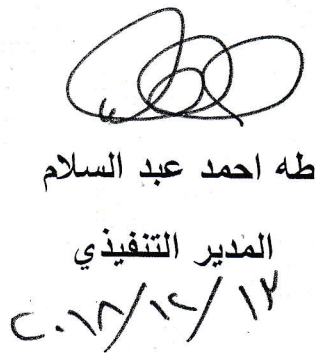 طه احمد عبد السلام
المدير التنفيذي
٢٠١٨/١٢/١٢